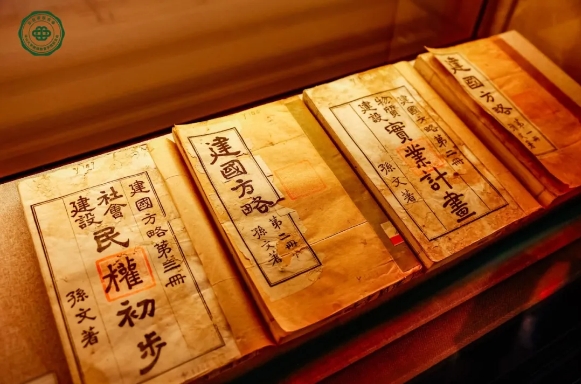 建國方略第三冊
社會建設
民權初步
孫文著
建國方略
第二冊
孫文著
建國方略第二冊
物質建設
實業計畫
孫文著
建國方略